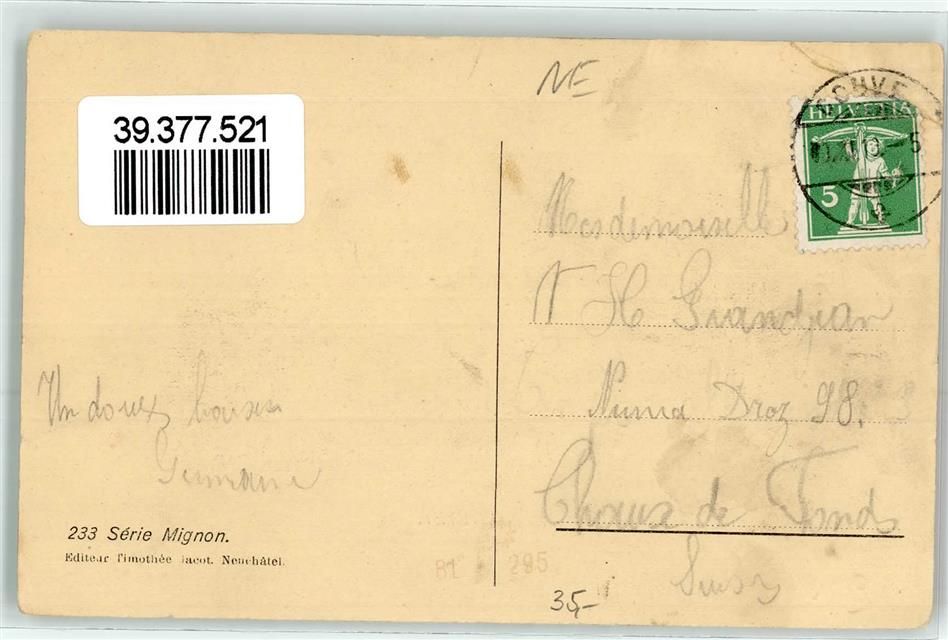 39.377.521
NE
COUVET
HELVETIA
5
Mesdemoiselle
H Grandjean
Numa Droz 98.
Chaux de Fonds
Suisse
Un doux baiser
Germaine
233 Série Mignon.
Editeur Timothée Jacot. Neuchâtel.
81 295
35,-